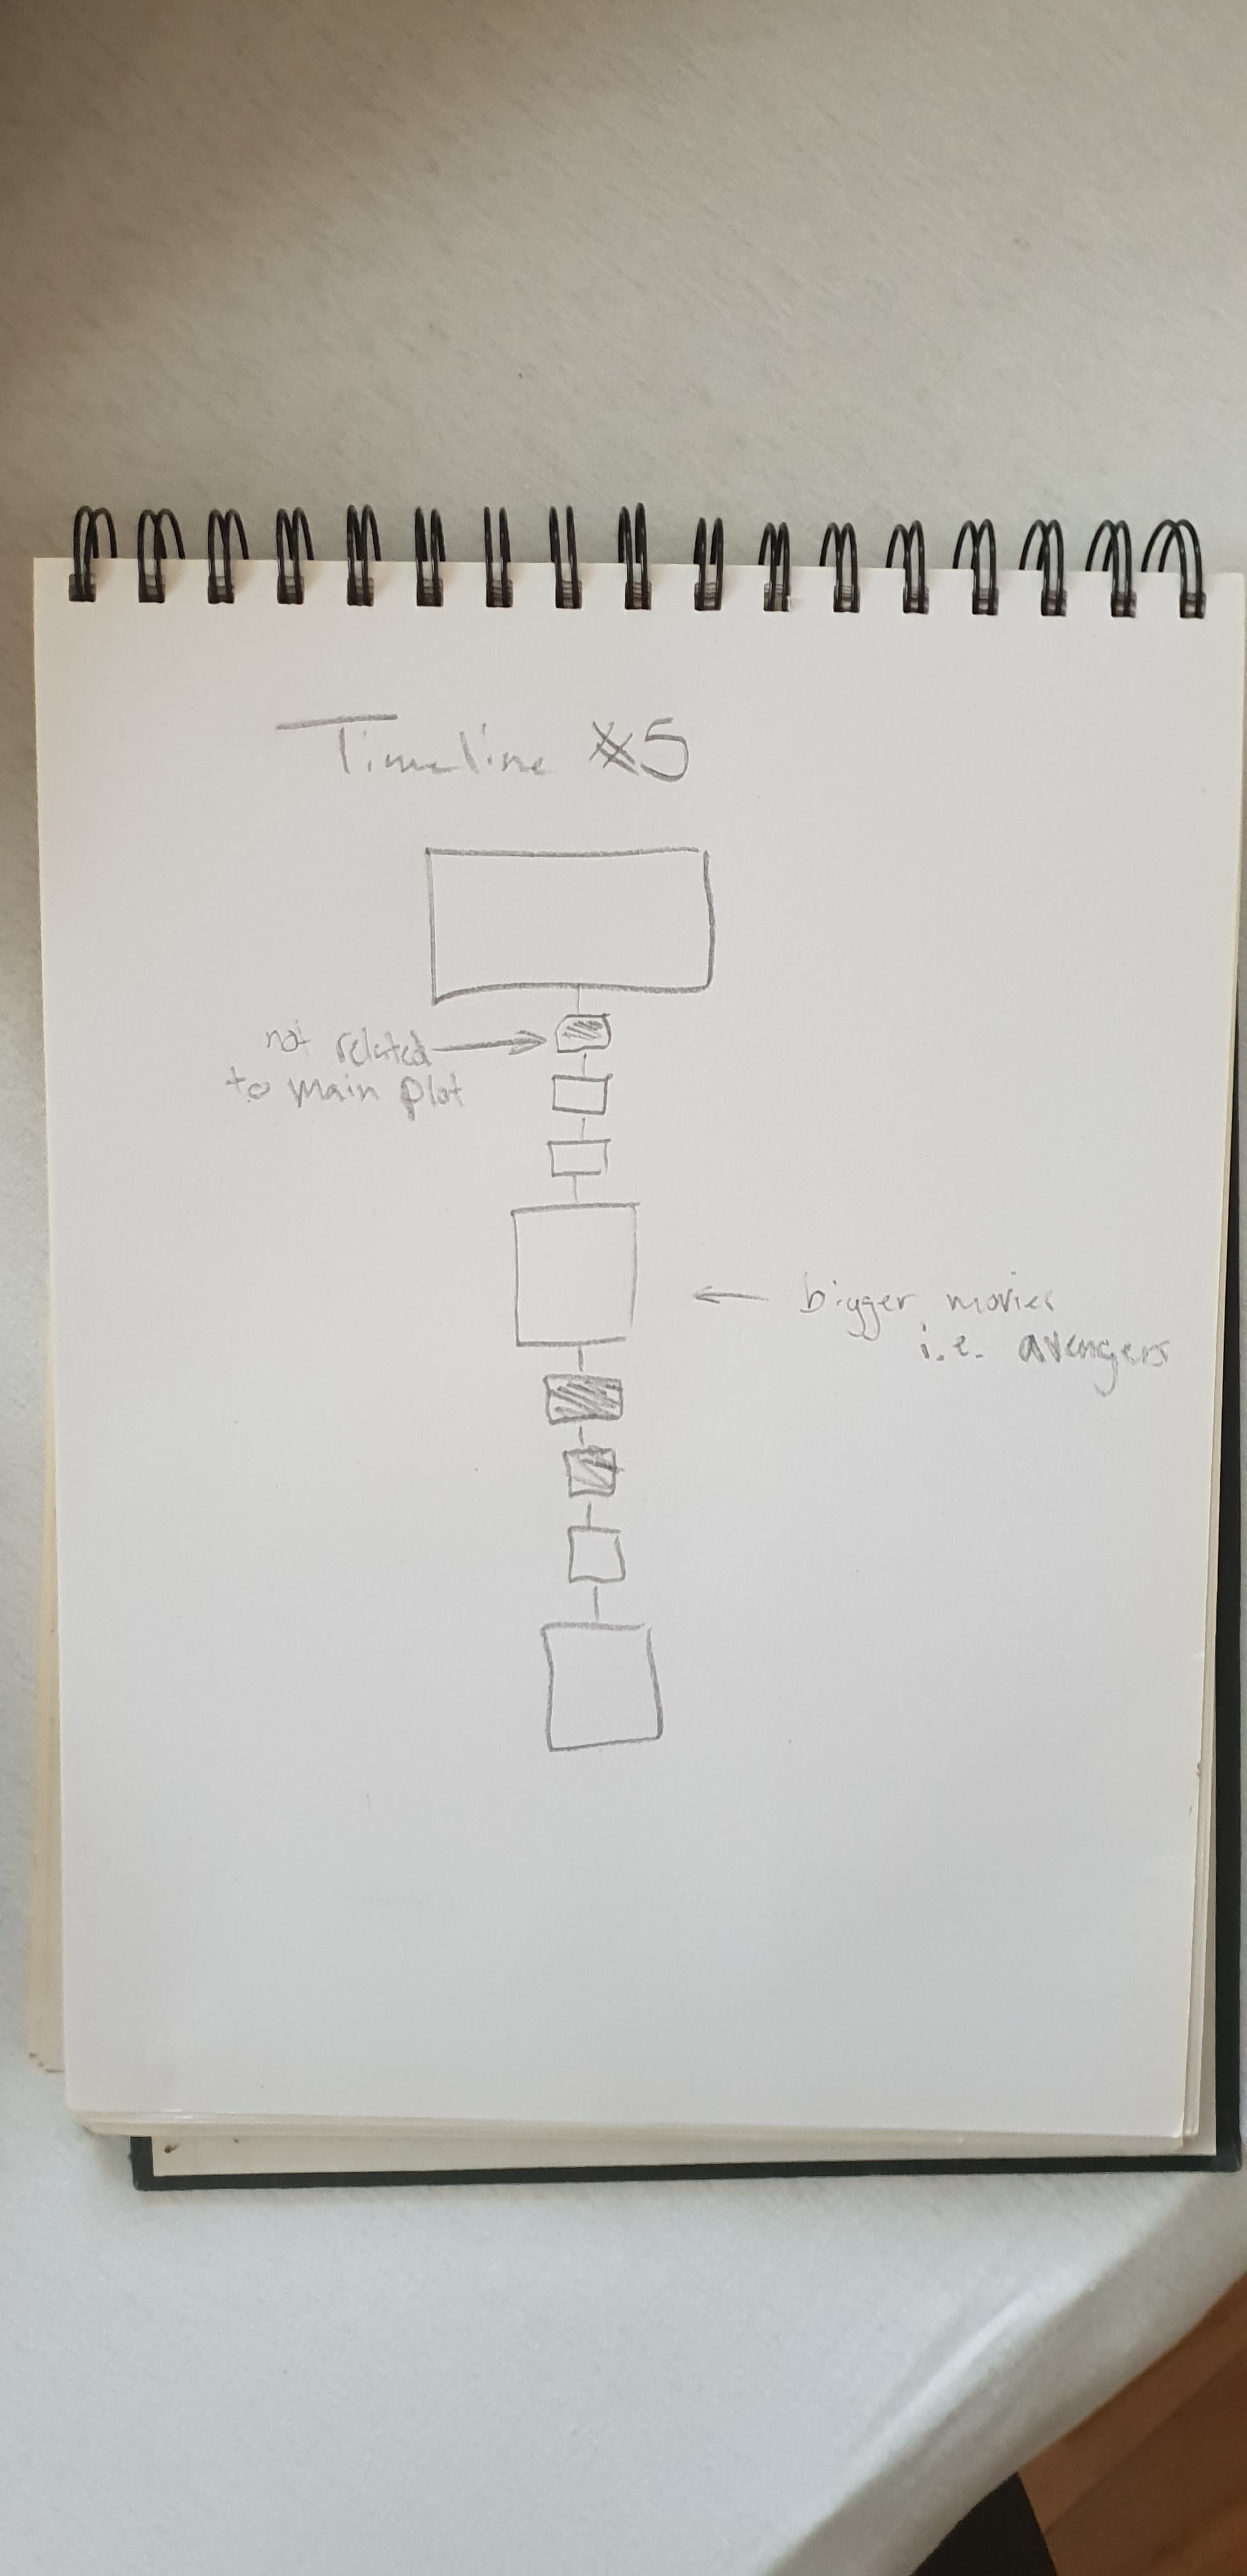 Timeline 5
not related
to main plot
bigger movies
i.e. avengers